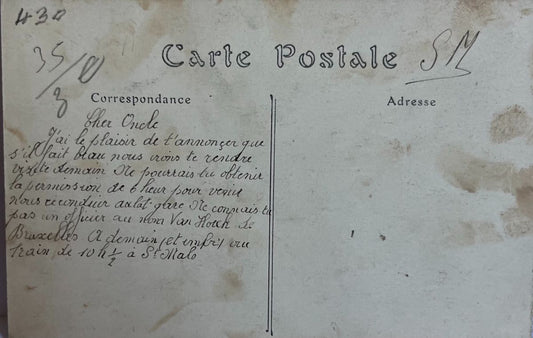 430
35/0
3
Carte Postale
SM
Correspondance
Adresse
Cher Oncle
J'ai le plaisir de t'annonçer que
s'il fait beau nous irons te rendre
visite demain Ne pourrais tu obtenir
la permission de 1 heur pour venir
nous reconduir à la gare Ne connais tu
pas un officier au nom Van de
Bruxelles A demain (et embr) au
train de 10 h ½ à St Malo